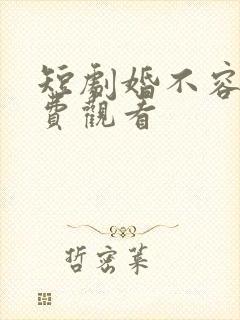 短劇婚不容
費觀看
哲密葉